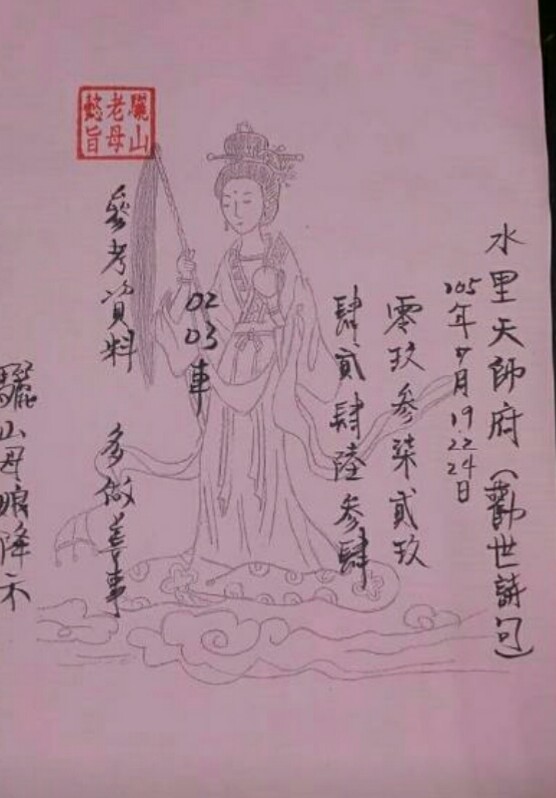 水里天師府(勸世講句)
105年廿月19 22 24日
零玖參柒貳玖
肆貳肆陸參肆
02 03 車
驪山老母懿旨
參考資料 多做善事
驪山母娘降示